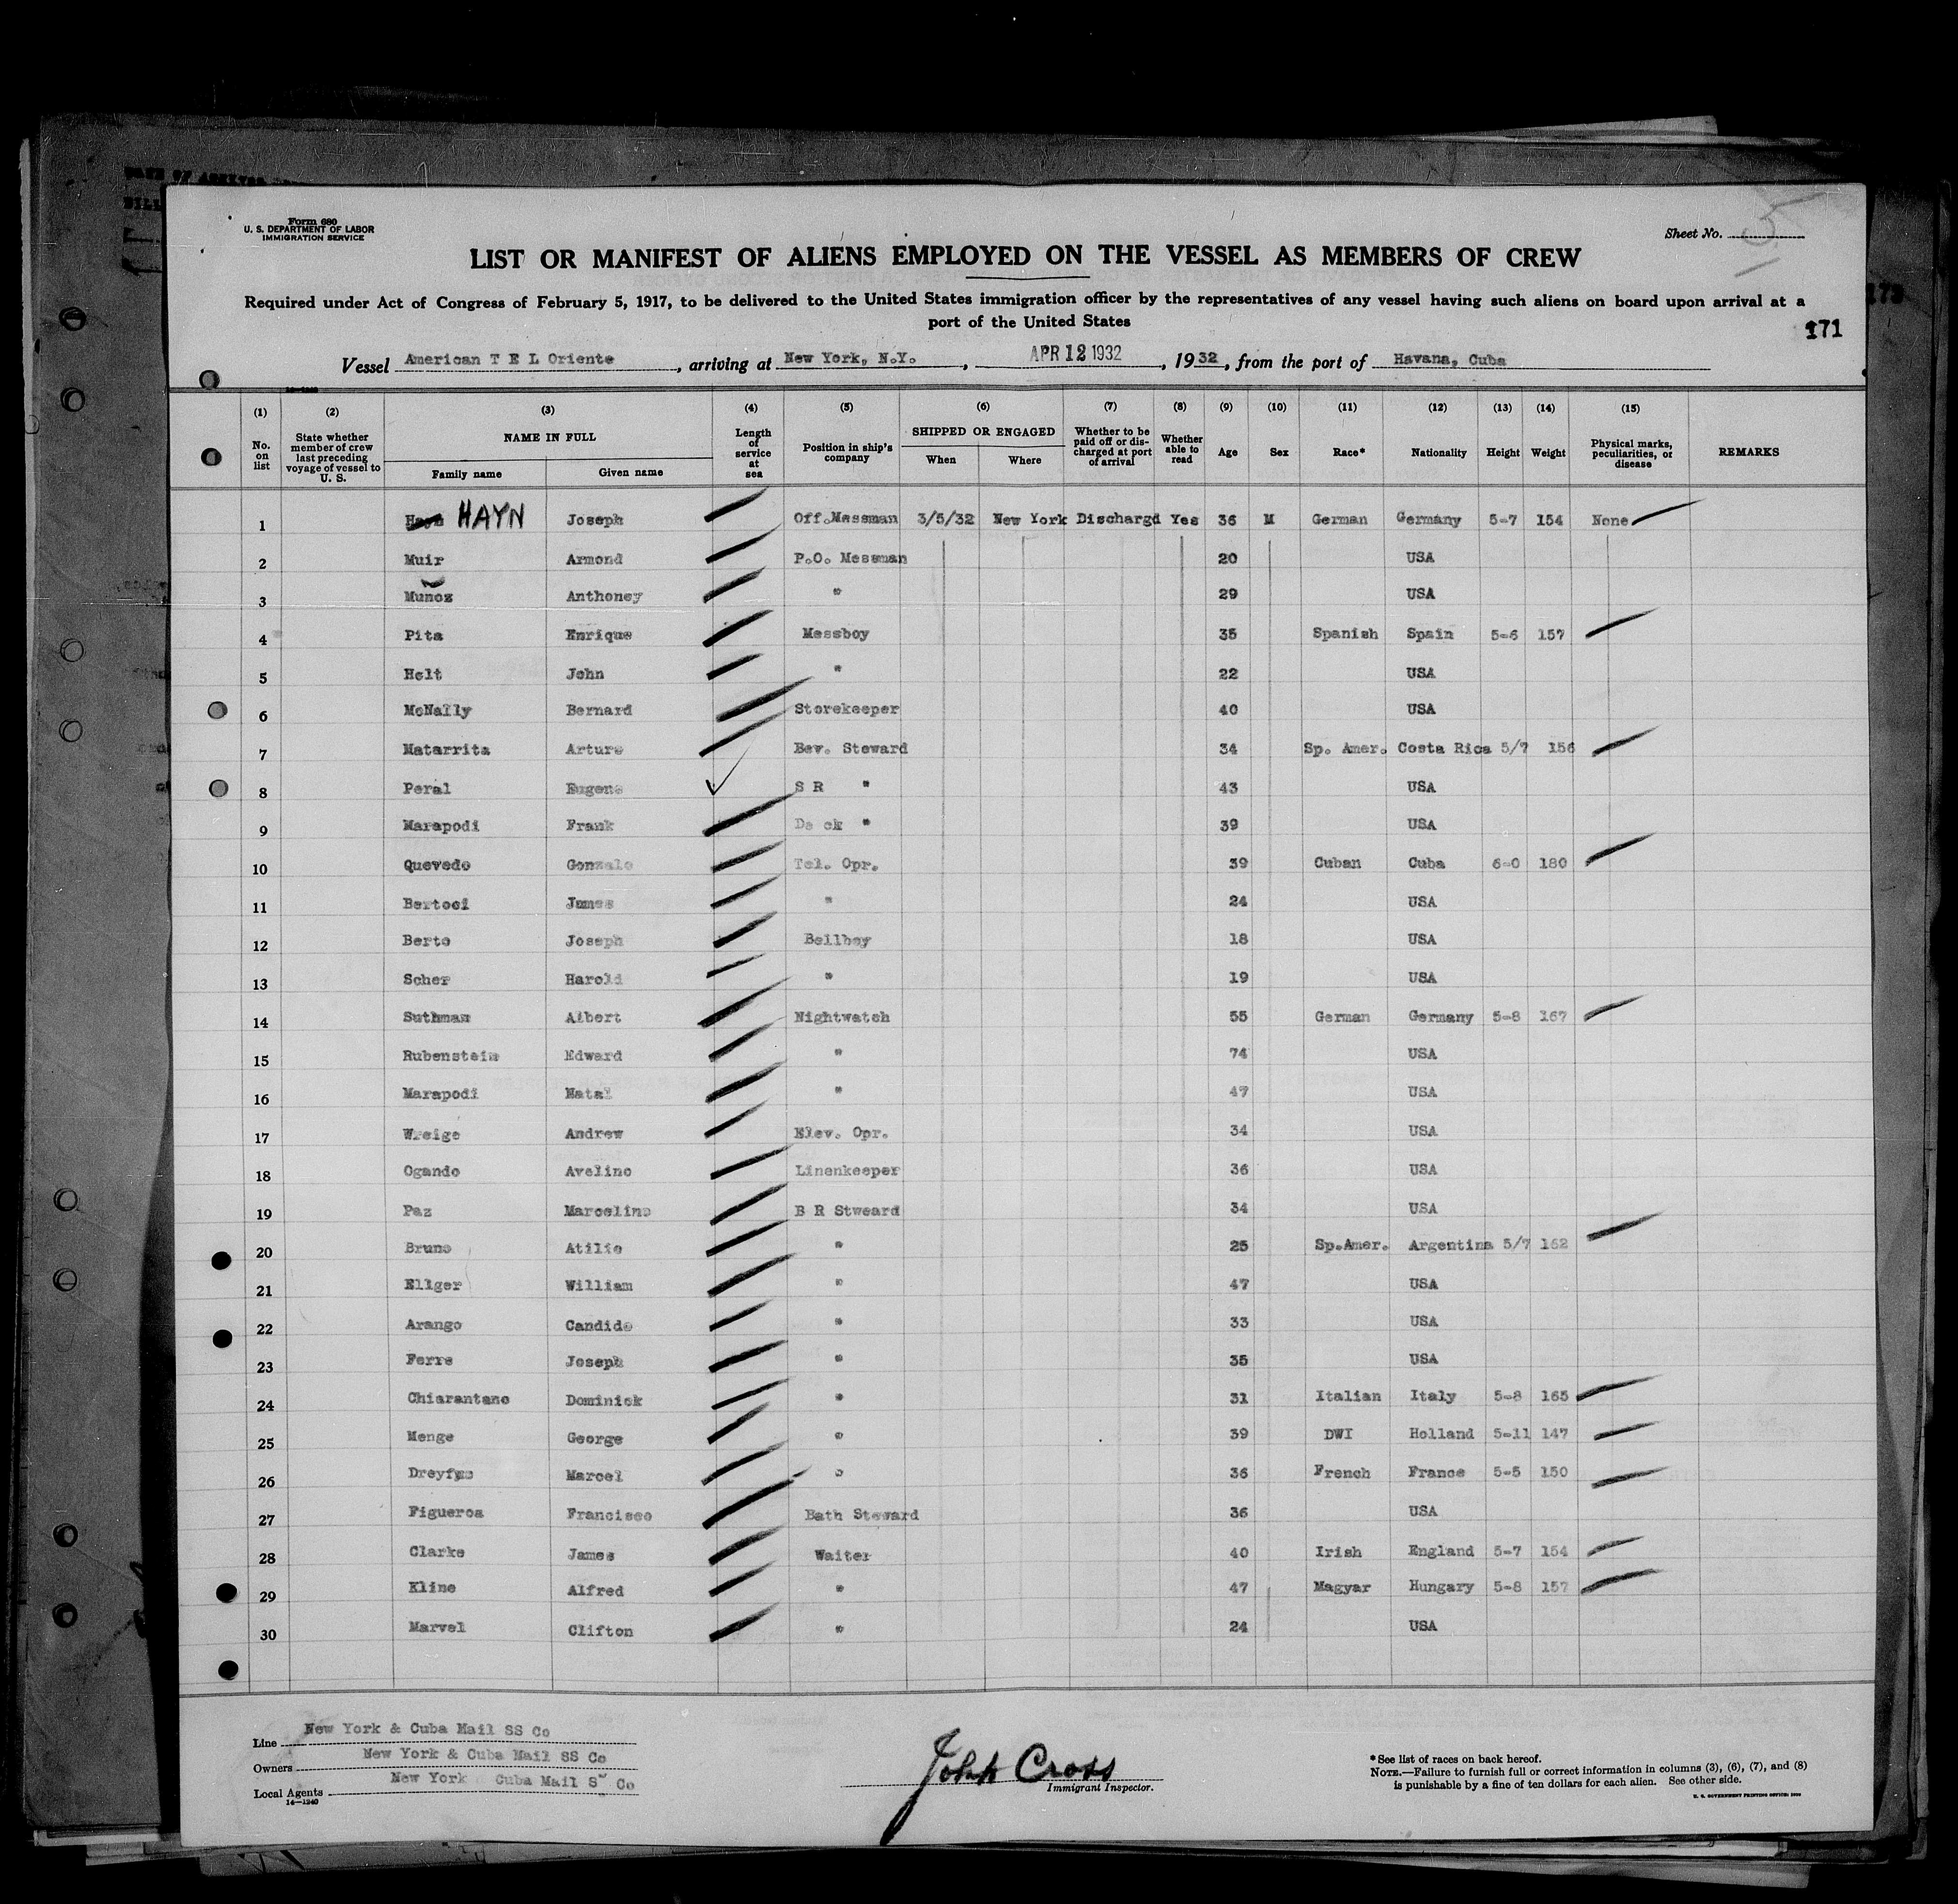 Form 680
U. S. DEPARTMENT OF LABOR
IMMIGRATION SERVICE
Sheet No.
LIST OR MANIFEST OF ALIENS EMPLOYED ON THE VESSEL AS MEMBERS OF CREW
Required under Act of Congress of February 5, 1917, to be delivered to the United States immigration officer by the representatives of any vessel having such aliens on board upon arrival at a
port of the United States
171
Vessel American T E L Oriente, arriving at New York, N.Y., APR 12 1932, 1932, from the port of Havana, Cuba
(1) (2) (3) (4) (5) (6) (7) (8) (9) (10) (11) (12) (13) (14) (15)
No. on list State whether member of crew last preceding voyage of vessel to U. S. NAME IN FULL Family name Given name Length of service at sea Position in ship's company SHIPPED OR ENGAGED When Where Whether to be paid off or discharged at port of arrival Whether able to read Age Sex Race* Nationality Height Weight Physical marks, peculiarities, or disease REMARKS
1 Hayn HAYN Joseph Off.Messman 3/5/32 New York Dischargd Yes 36 M German Germany 5-7 154 None
2 Muir Armond P.O. Messman 20 USA
3 Munoz Anthoney " 29 USA
4 Pita Enrique Messboy 35 Spanish Spain 5-6 157
5 Holt John " 22 USA
6 McNally Bernard Storekeeper 40 USA
7 Matarrita Arturo Bev. Steward 34 Sp. Amer. Costa Rica 5/7 156
8 Peral Eugene S R " 43 USA
9 Marapodi Frank De ck " 39 USA
10 Quevedo Gonzalo Tel. Opr. 39 Cuban Cuba 6-0 180
11 Bertoci James " 24 USA
12 Berto Joseph Bellboy 18 USA
13 Scher Harold " 19 USA
14 Suthman Albert Nightwatch 55 German Germany 5-8 167
15 Rubenstein Edward " 74 USA
16 Marapodi Natal " 47 USA
17 Wreige Andrew Elev. Opr. 34 USA
18 Ogando Avelino Linenkeeper 36 USA
19 Paz Marcelino B R Stweard 34 USA
20 Bruno Atilio " 25 Sp.Amer. Argentina 5/7 162
21 Ellger William " 47 USA
22 Arango Candido " 33 USA
23 Ferre Joseph " 35 USA
24 Chiarantano Dominick " 31 Italian Italy 5-8 165
25 Menge George " 39 DWI Holland 5-11 147
26 Dreyfus Marcel " 36 French France 5-5 150
27 Figueroa Francisco Bath Steward 36 USA
28 Clarke James Waiter 40 Irish England 5-7 154
29 Kline Alfred " 47 Magyar Hungary 5-8 157
30 Marvel Clifton " 24 USA
Line New York & Cuba Mail SS Co
Owners New York & Cuba Mail SS Co
Local Agents New York Cuba Mail S Co
14—1240
John Cross
Immigrant Inspector.
*See list of races on back hereof.
NOTE.—Failure to furnish full or correct information in columns (3), (6), (7), and (8)
is punishable by a fine of ten dollars for each alien. See other side.